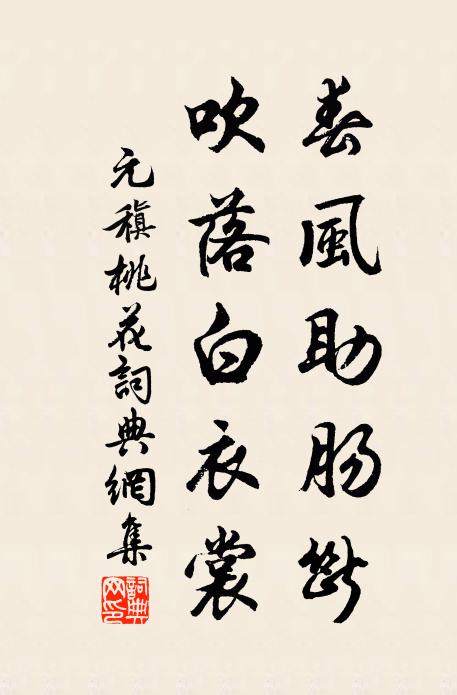 春風助肠斷
吹落白衣裳
元稹桃花詞典網集
詞典網印